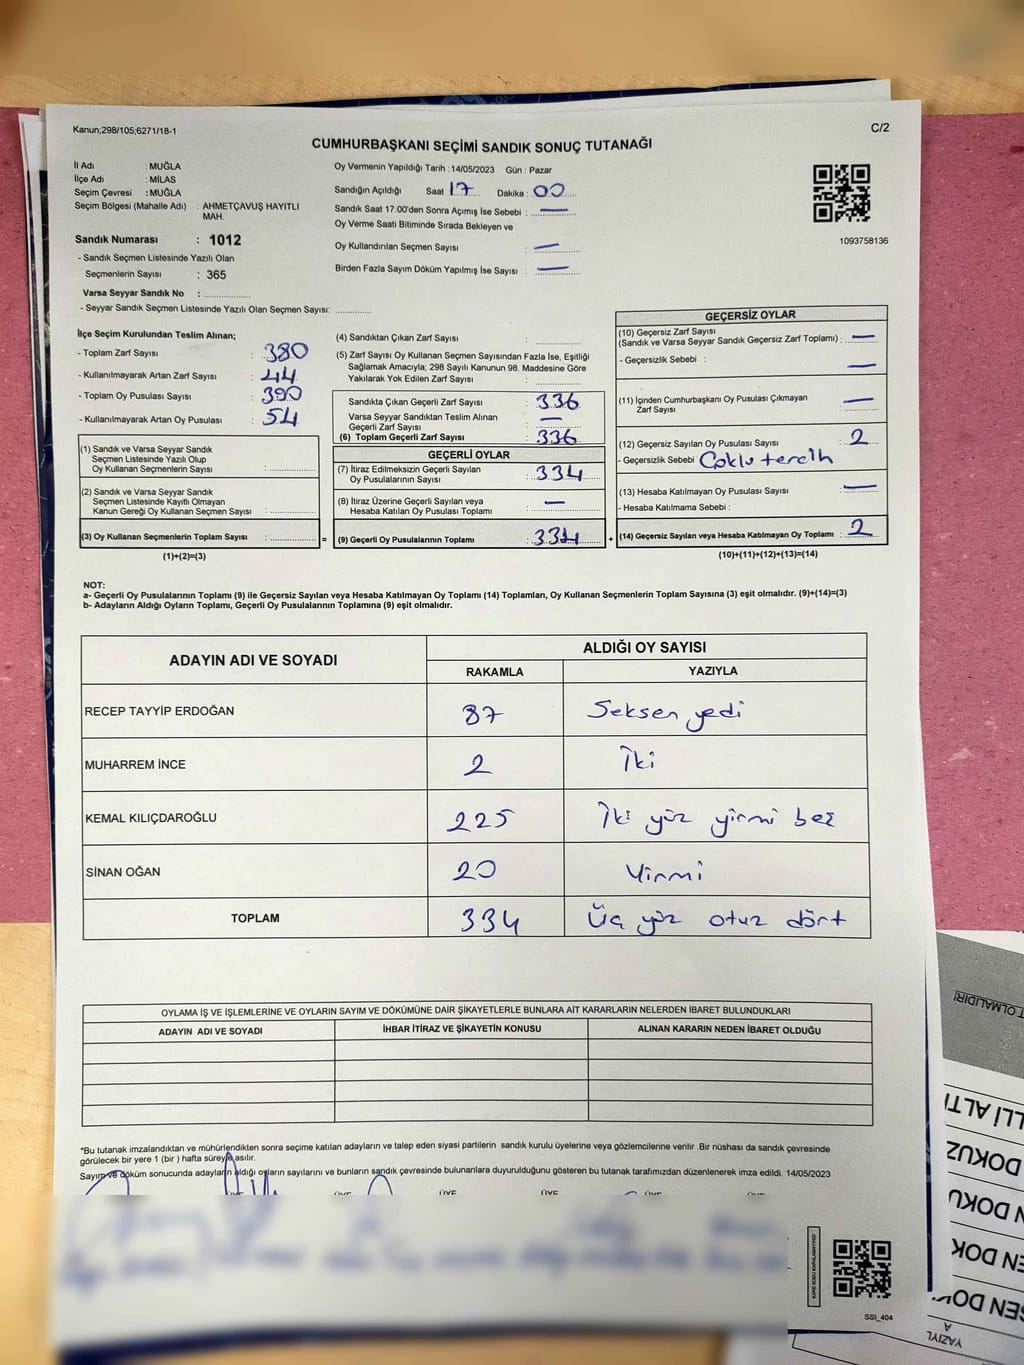 Kanun;298/105;6271/18-1
C/2
CUMHURBAŞKANI SEÇİMİ SANDIK SONUÇ TUTANAĞI
İl Adı : MUĞLA
İlçe Adı : MİLAS
Seçim Çevresi : MUĞLA
Seçim Bölgesi (Mahalle Adı) : AHMETÇAVUŞ HAYITLI
MAH.
Sandık Numarası : 1012
- Sandık Seçmen Listesinde Yazılı Olan
Seçmenlerin Sayısı : 365
Varsa Seyyar Sandık No : ................
- Seyyar Sandık Seçmen Listesinde Yazılı Olan Seçmen Sayısı: ............
Oy Vermenin Yapıldığı Tarih : 14/05/2023 Gün : Pazar
Sandığın Açıldığı Saat 17 Dakika : 00
Sandık Saat 17:00'den Sonra Açımış İse Sebebi : —
Oy Verme Saati Bitiminde Sırada Bekleyen ve
Oy Kullandırılan Seçmen Sayısı : —
Birden Fazla Sayım Döküm Yapılmış İse Sayısı : —
1093758136
İlçe Seçim Kurulundan Teslim Alınan;
- Toplam Zarf Sayısı : 380
- Kullanılmayarak Artan Zarf Sayısı : 44
- Toplam Oy Pusulası Sayısı : 390
- Kullanılmayarak Artan Oy Pusulası : 54
(1) Sandık ve Varsa Seyyar Sandık
Seçmen Listesinde Yazılı Olup
Oy Kullanan Seçmenlerin Sayısı : ............
(2) Sandık ve Varsa Seyyar Sandık
Seçmen Listesinde Kayıtlı Olmayan
Kanun Gereği Oy Kullanan Seçmen Sayısı : ............
(3) Oy Kullanan Seçmenlerin Toplam Sayısı : ............ =
(1)+(2)=(3)
(4) Sandıktan Çıkan Zarf Sayısı : ............
(5) Zarf Sayısı Oy Kullanan Seçmen Sayısından Fazla İse, Eşitliği
Sağlamak Amacıyla; 298 Sayılı Kanunun 98. Maddesine Göre
Yakılarak Yok Edilen Zarf Sayısı : ............
Sandıkta Çıkan Geçerli Zarf Sayısı : 336
Varsa Seyyar Sandıktan Teslim Alınan
Geçerli Zarf Sayısı : —
(6) Toplam Geçerli Zarf Sayısı : 336
GEÇERLİ OYLAR
(7) İtiraz Edilmeksizin Geçerli Sayılan
Oy Pusulalarının Sayısı : 334
(8) İtiraz Üzerine Geçerli Sayılan veya
Hesaba Katılan Oy Pusulası Toplamı : —
(9) Geçerli Oy Pusulalarının Toplamı : 334 +
GEÇERSİZ OYLAR
(10) Geçersiz Zarf Sayısı
(Sandık ve Varsa Seyyar Sandık Geçersiz Zarf Toplamı) : —
- Geçersizlik Sebebi : —
(11) İçinden Cumhurbaşkanı Oy Pusulası Çıkmayan
Zarf Sayısı : —
(12) Geçersiz Sayılan Oy Pusulası Sayısı : 2
- Geçersizlik Sebebi Çoklu tercih
(13) Hesaba Katılmayan Oy Pusulası Sayısı : —
- Hesaba Katılmama Sebebi :
(14) Geçersiz Sayılan veya Hesaba Katılmayan Oy Toplamı : 2
(10)+(11)+(12)+(13)=(14)
NOT:
a- Geçerli Oy Pusulalarının Toplamı (9) ile Geçersiz Sayılan veya Hesaba Katılmayan Oy Toplamı (14) Toplamları, Oy Kullanan Seçmenlerin Toplam Sayısına (3) eşit olmalıdır. (9)+(14)=(3)
b- Adayların Aldığı Oyların Toplamı, Geçerli Oy Pusulalarının Toplamına (9) eşit olmalıdır.
ADAYIN ADI VE SOYADI
ALDIĞI OY SAYISI
RAKAMLA YAZIYLA
RECEP TAYYİP ERDOĞAN 87 Seksen yedi
MUHARREM İNCE 2 İki
KEMAL KILIÇDAROĞLU 225 İki yüz yirmi beş
SİNAN OĞAN 20 Yirmi
TOPLAM 334 Üç yüz otuz dört
OYLAMA İŞ VE İŞLEMLERİNE VE OYLARIN SAYIM VE DÖKÜMÜNE DAİR ŞİKAYETLERLE BUNLARA AİT KARARLARIN NELERDEN İBARET BULUNDUKLARI
ADAYIN ADI VE SOYADI İHBAR İTİRAZ VE ŞİKAYETİN KONUSU ALINAN KARARIN NEDEN İBARET OLDUĞU
*Bu tutanak imzalandıktan ve mühürlendikten sonra seçime katılan adayların ve talep eden siyasi partilerin sandık kurulu üyelerine veya gözlemcilerine verilir .Bir nüshası da sandık çevresinde
görülecek bir yere 1 (bir ) hafta süreyle asılır.
Sayım ve döküm sonucunda adayların aldığı oyların sayılarını ve bunların sandık çevresinde bulunanlara duyurulduğunu gösteren bu tutanak tarafımızdan düzenlenerek imza edildi. 14/05/2023
ÜYE ÜYE ÜYE ÜYE ÜYE ÜYE
KARE KODU KARALAMAYINIZ!
SSI_404
T OLMALIDIR!
LLİ ALTI
DOKUZ
N DOKU
EN DOK
SEN DOK
YAZIYL
A